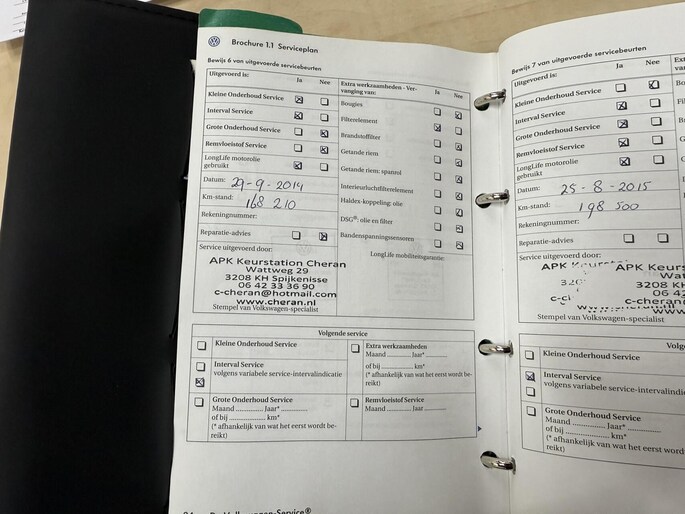 Brochure 1.1 Serviceplan
Bewijs 6 van uitgevoerde servicebeurten
Uitgevoerd is: Ja Nee
Kleine Onderhoud Service
Interval Service
Grote Onderhoud Service
Remvloeistof Service
LongLife motorolie
gebruikt
Datum: 29-9-2014
Km-stand: 168 210
Rekeningnummer:
Reparatie-advies
Service uitgevoerd door:
APK Keurstation Cheran
Wattweg 29
3208 KH Spijkenisse
06 42 33 36 90
c-cheran@hotmail.com
www.cheran.nl
Stempel van Volkswagen-specialist
Extra werkzaamheden - Ver-
vanging van: Ja Nee
Bougies
Filterelement
Brandstoffilter
Getande riem
Getande riem; spanrol
Interieurluchtfilterelement
Haldex-koppeling: olie
DSG®: olie en filter
Bandenspanningssensoren
LongLife mobiliteitsgarantie:
Volgende service
Kleine Onderhoud Service
Interval Service
volgens variabele service-intervalindicatie
Grote Onderhoud Service
Maand .............. Jaar* ..............
of bij .............. km*
(* afhankelijk van wat het eerst wordt be-
reikt)
Extra werkzaamheden
Maand .......... Jaar* ..........
of bij .................. km*
(* afhankelijk van wat het eerst wordt be-
reikt)
Remvloeistof Service
Maand .......... Jaar ..........
Bewijs 7 van uitgevoerde servicebeurten
Uitgevoerd is: Ja Nee
Kleine Onderhoud Service
Interval Service
Grote Onderhoud Service
Remvloeistof Service
LongLife motorolie
gebruikt
Datum: 25-8-2015
Km-stand: 198 500
Rekeningnummer:
Reparatie-advies
Service uitgevoerd door:
APK Keurs
3208 KH
06 4
c-cheran
Stempel van Volkswagen-specialist
Kleine Onderhoud Service
Interval Service
volgens variabele service-intervalindic
Grote Onderhoud Service
Maand .............. Jaar* ..............
of bij .............. km*
(* afhankelijk van wat het eerst wordt be-
reikt)